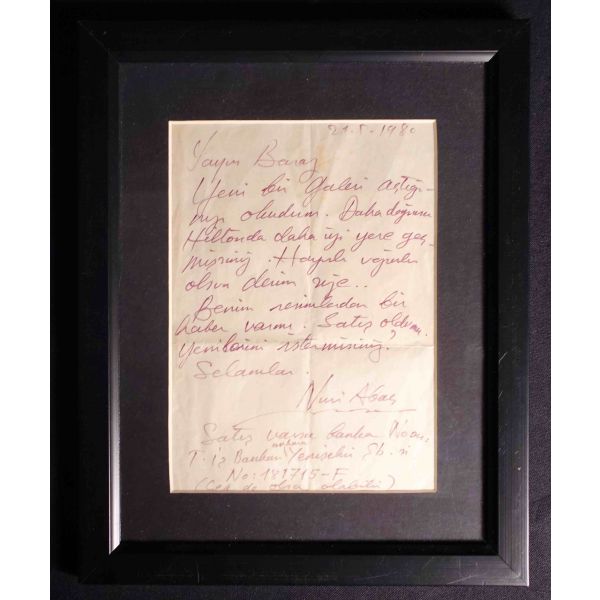 21-5-1980
Yayın Baraz
Yeni bir Galeri açtığı-
nızı okudum. Daha doğrusu
Hiltonda daha iyi yere geç-
mişsiniz. Hayırlı uğurlu
olsun derim size..
Benim resimlerden bir
haber varmı. Satış oldumu.
Yenilerini istermisiniz?
Selamlar.
Nuri Abaç
Satış varsa banka
T. iş Bankası Ankara Yenişehir Şb. si
No: 181715-F
(Çek de olsa olabilir)